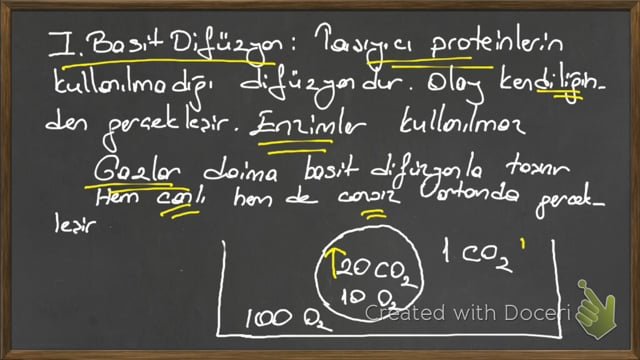 I. Basit Difüzyon: Taşıyıcı proteinlerin
kullanılmadığı difüzyondur. Olay kendiliğin-
den gerçekleşir. Enzimler kullanılmaz
Gazlar daima basit difüzyonla taşınır
Hem canlı hem de cansız ortamda gerçek-
leşir
20 CO₂
1 CO₂
10 O₂
100 O₂
Created with Doceri